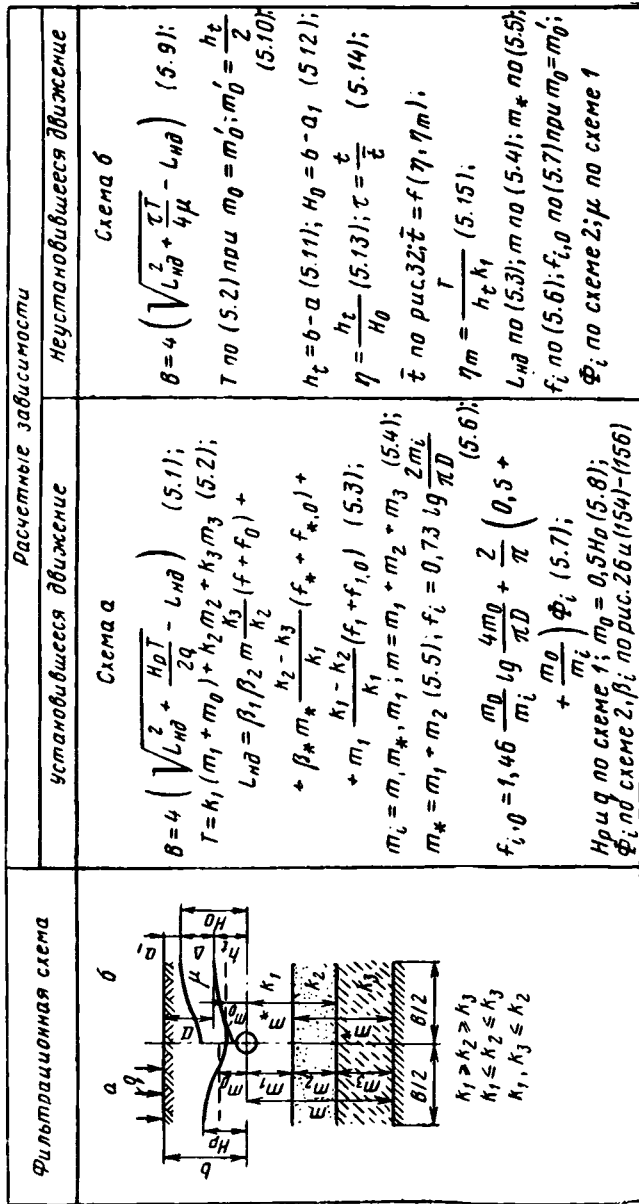 Фильтрационная схема
Расчетные зависимости
Установившееся движение
Неустановившееся движение
а б
q
a₁
a
Δ
μ
H₀
hₜ
m₀'
m₀
Hр
b
m₁
m₂
m₃
m
m*
m*
k₁
k₂
k₃
B/2 B/2
k₁ ⩾ k₂ ⩾ k₃
k₁ ⩽ k₂ ⩽ k₃
k₁, k₃ ⩽ k₂
Схема а
B = 4 (√(L²нд + HрT/2q) − Lнд) (5.1);
T = k₁(m₁ + m₀) + k₂m₂ + k₃m₃ (5.2);
Lнд = β₁β₂ m k₃/k₂ (f + f₀) +
+ β* m* (k₂ − k₃)/k₁ (f* + f*,₀) +
+ m₁ (k₁ − k₂)/k₁ (f₁ + f₁,₀) (5.3);
mᵢ = m, m*, m₁; m = m₁ + m₂ + m₃ (5.4);
m* = m₁ + m₂ (5.5); fᵢ = 0,73 lg 2mᵢ/πD (5.6);
fᵢ,₀ = 1,46 m₀/mᵢ lg 4m₀/πD + 2/π (0,5 +
+ m₀/mᵢ) Φᵢ (5.7);
Hр и q по схеме 1; m₀ = 0,5Hо (5.8);
Φᵢ по схеме 2, βᵢ по рис. 26 и (154)-(156)
Схема б
B = 4 (√(L²нд + τT/4μ) − Lнд) (5.9);
T по (5.2) при m₀ = m₀'; m₀' = hₜ/2 (5.10);
hₜ = b − a (5.11); H₀ = b − a₁ (5.12);
η = hₜ/H₀ (5.13); τ = t/t̄ (5.14);
t̄ по рис 32; t̄ = f(η, ηm);
ηm = T/hₜk₁ (5.15);
Lнд по (5.3); m по (5.4); m* по (5.5);
fᵢ по (5.6); fᵢ,₀ по (5.7) при m₀ = m₀';
Φᵢ по схеме 2; μ по схеме 1